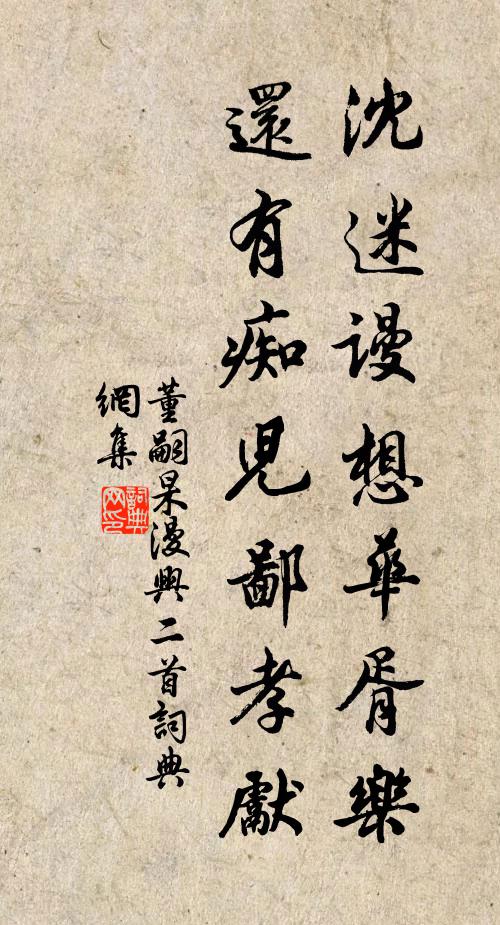 沈迷謾想華胥樂
還有痴兒鄙孝獻
董嗣杲漫興二首詞典
網集
詞典
网印